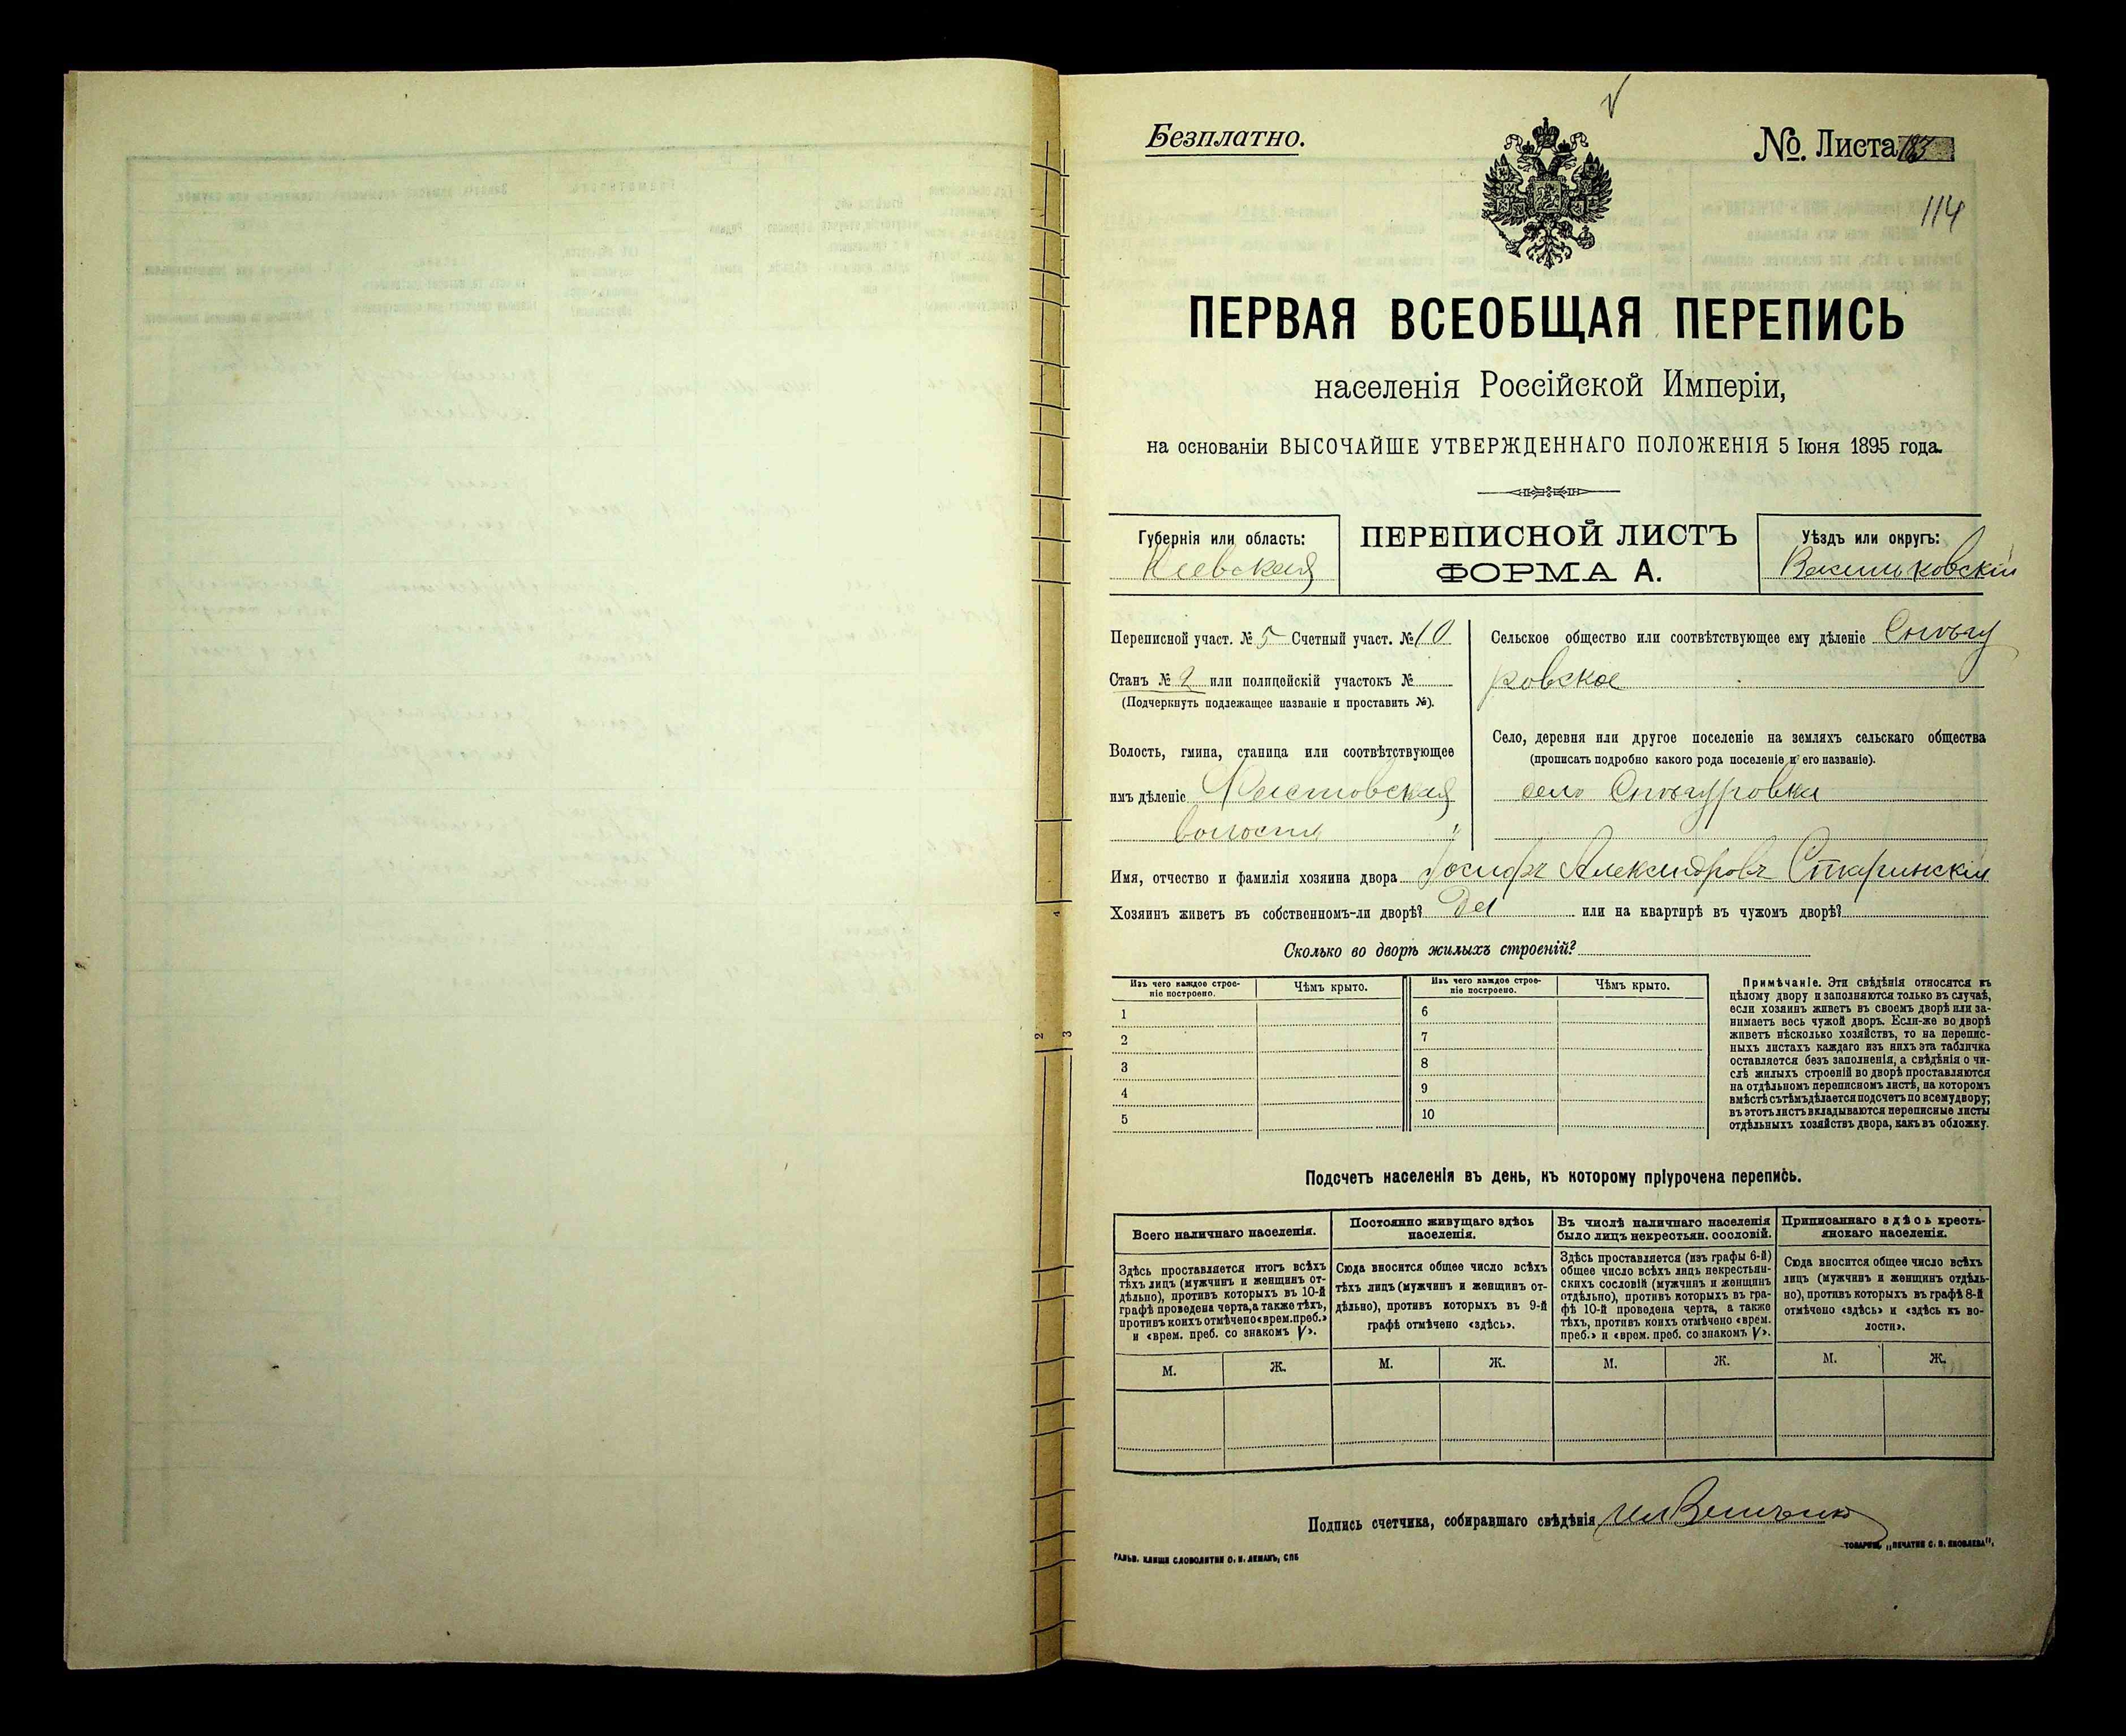 Безплатно.
№ Листа 183
114
ПЕРВАЯ ВСЕОБЩАЯ ПЕРЕПИСЬ
населенія Россійской Имперіи,
на основаніи ВЫСОЧАЙШЕ УТВЕРЖДЕННАГО ПОЛОЖЕНІЯ 5 Іюня 1895 года.
Губернія или область:
Кіевская
ПЕРЕПИСНОЙ ЛИСТЪ
ФОРМА А.
Уѣздъ или округъ:
Васильковскій
Переписной участ. № 5 Счетный участ. № 10
Станъ № 2 или полицейскій участокъ №
(Подчеркнуть подлежащее названіе и проставить №).
Волость, гмина, станица или соотвѣтствующее
имъ дѣленіе
волость
Сельское общество или соотвѣтствующее ему дѣленіе Снѣгу
ровское
Село, деревня или другое поселеніе на земляхъ сельскаго общества
(прописать подробно какого рода поселеніе и его названіе).
село Снѣгуровка
Имя, отчество и фамилія хозяина двора Іосифъ Александровъ
Хозяинъ живетъ въ собственномъ-ли дворѣ? Да или на квартирѣ въ чужомъ дворѣ?
Сколько во дворѣ жилыхъ строеній?
Изъ чего каждое строе-
ніе построено.
Чѣмъ крыто.
Изъ чего каждое строе-
ніе построено.
Чѣмъ крыто.
1
2
3
4
5
6
7
8
9
10
Примѣчаніе. Эти свѣдѣнія относятся къ
цѣлому двору и заполняются только въ случаѣ,
если хозяинъ живетъ въ своемъ дворѣ или за-
нимаетъ весь чужой дворъ. Если-же во дворѣ
живетъ нѣсколько хозяйствъ, то на перепис-
ныхъ листахъ каждаго изъ нихъ эта табличка
оставляется безъ заполненія, а свѣдѣнія о чи-
слѣ жилыхъ строеній во дворѣ проставляются
на отдѣльномъ переписномъ листѣ, на которомъ
вмѣстѣ съ тѣмъ дѣлается подсчетъ по всему двору;
въ этотъ листъ вкладываются переписные листы
отдѣльныхъ хозяйствъ двора, какъ въ обложку.
Подсчетъ населенія въ день, къ которому пріурочена перепись.
Всего наличнаго населенія.
Здѣсь проставляется итогъ всѣхъ
тѣхъ лицъ (мужчинъ и женщинъ от-
дѣльно), противъ которыхъ въ 10-й
графѣ проведена черта, а также тѣхъ,
противъ коихъ отмѣчено «врем. преб.»
и «врем. преб. со знакомъ V».
Постоянно живущаго здѣсь
населенія.
Сюда вносится общее число всѣхъ
тѣхъ лицъ (мужчинъ и женщинъ от-
дѣльно), противъ которыхъ въ 9-й
графѣ отмѣчено «здѣсь».
Въ числѣ наличнаго населенія
было лицъ некрестьян. сословій.
Здѣсь проставляется (изъ графы 6-й)
общее число всѣхъ лицъ некрестьян-
скихъ сословій (мужчинъ и женщинъ
отдѣльно), противъ которыхъ въ гра-
фѣ 10-й проведена черта, а также
тѣхъ, противъ коихъ отмѣчено «врем.
преб.» и «врем. преб. со знакомъ V».
Приписаннаго здѣсь кресть-
янскаго населенія.
Сюда вносится общее число всѣхъ
лицъ (мужчинъ и женщинъ отдѣль-
но), противъ которыхъ въ графѣ 8-й
отмѣчено «здѣсь» и «здѣсь къ во-
лости».
М. Ж. М. Ж. М. Ж. М. Ж.
Подпись счетчика, собиравшаго свѣдѣнія
ГАЛЬВ. КЛИШЕ СЛОВОЛИТНИ О. И. ЛЕМАНЪ, СПБ
ТОВАРИЩ. „ПЕЧАТНЯ С. П. ЯКОВЛЕВА".